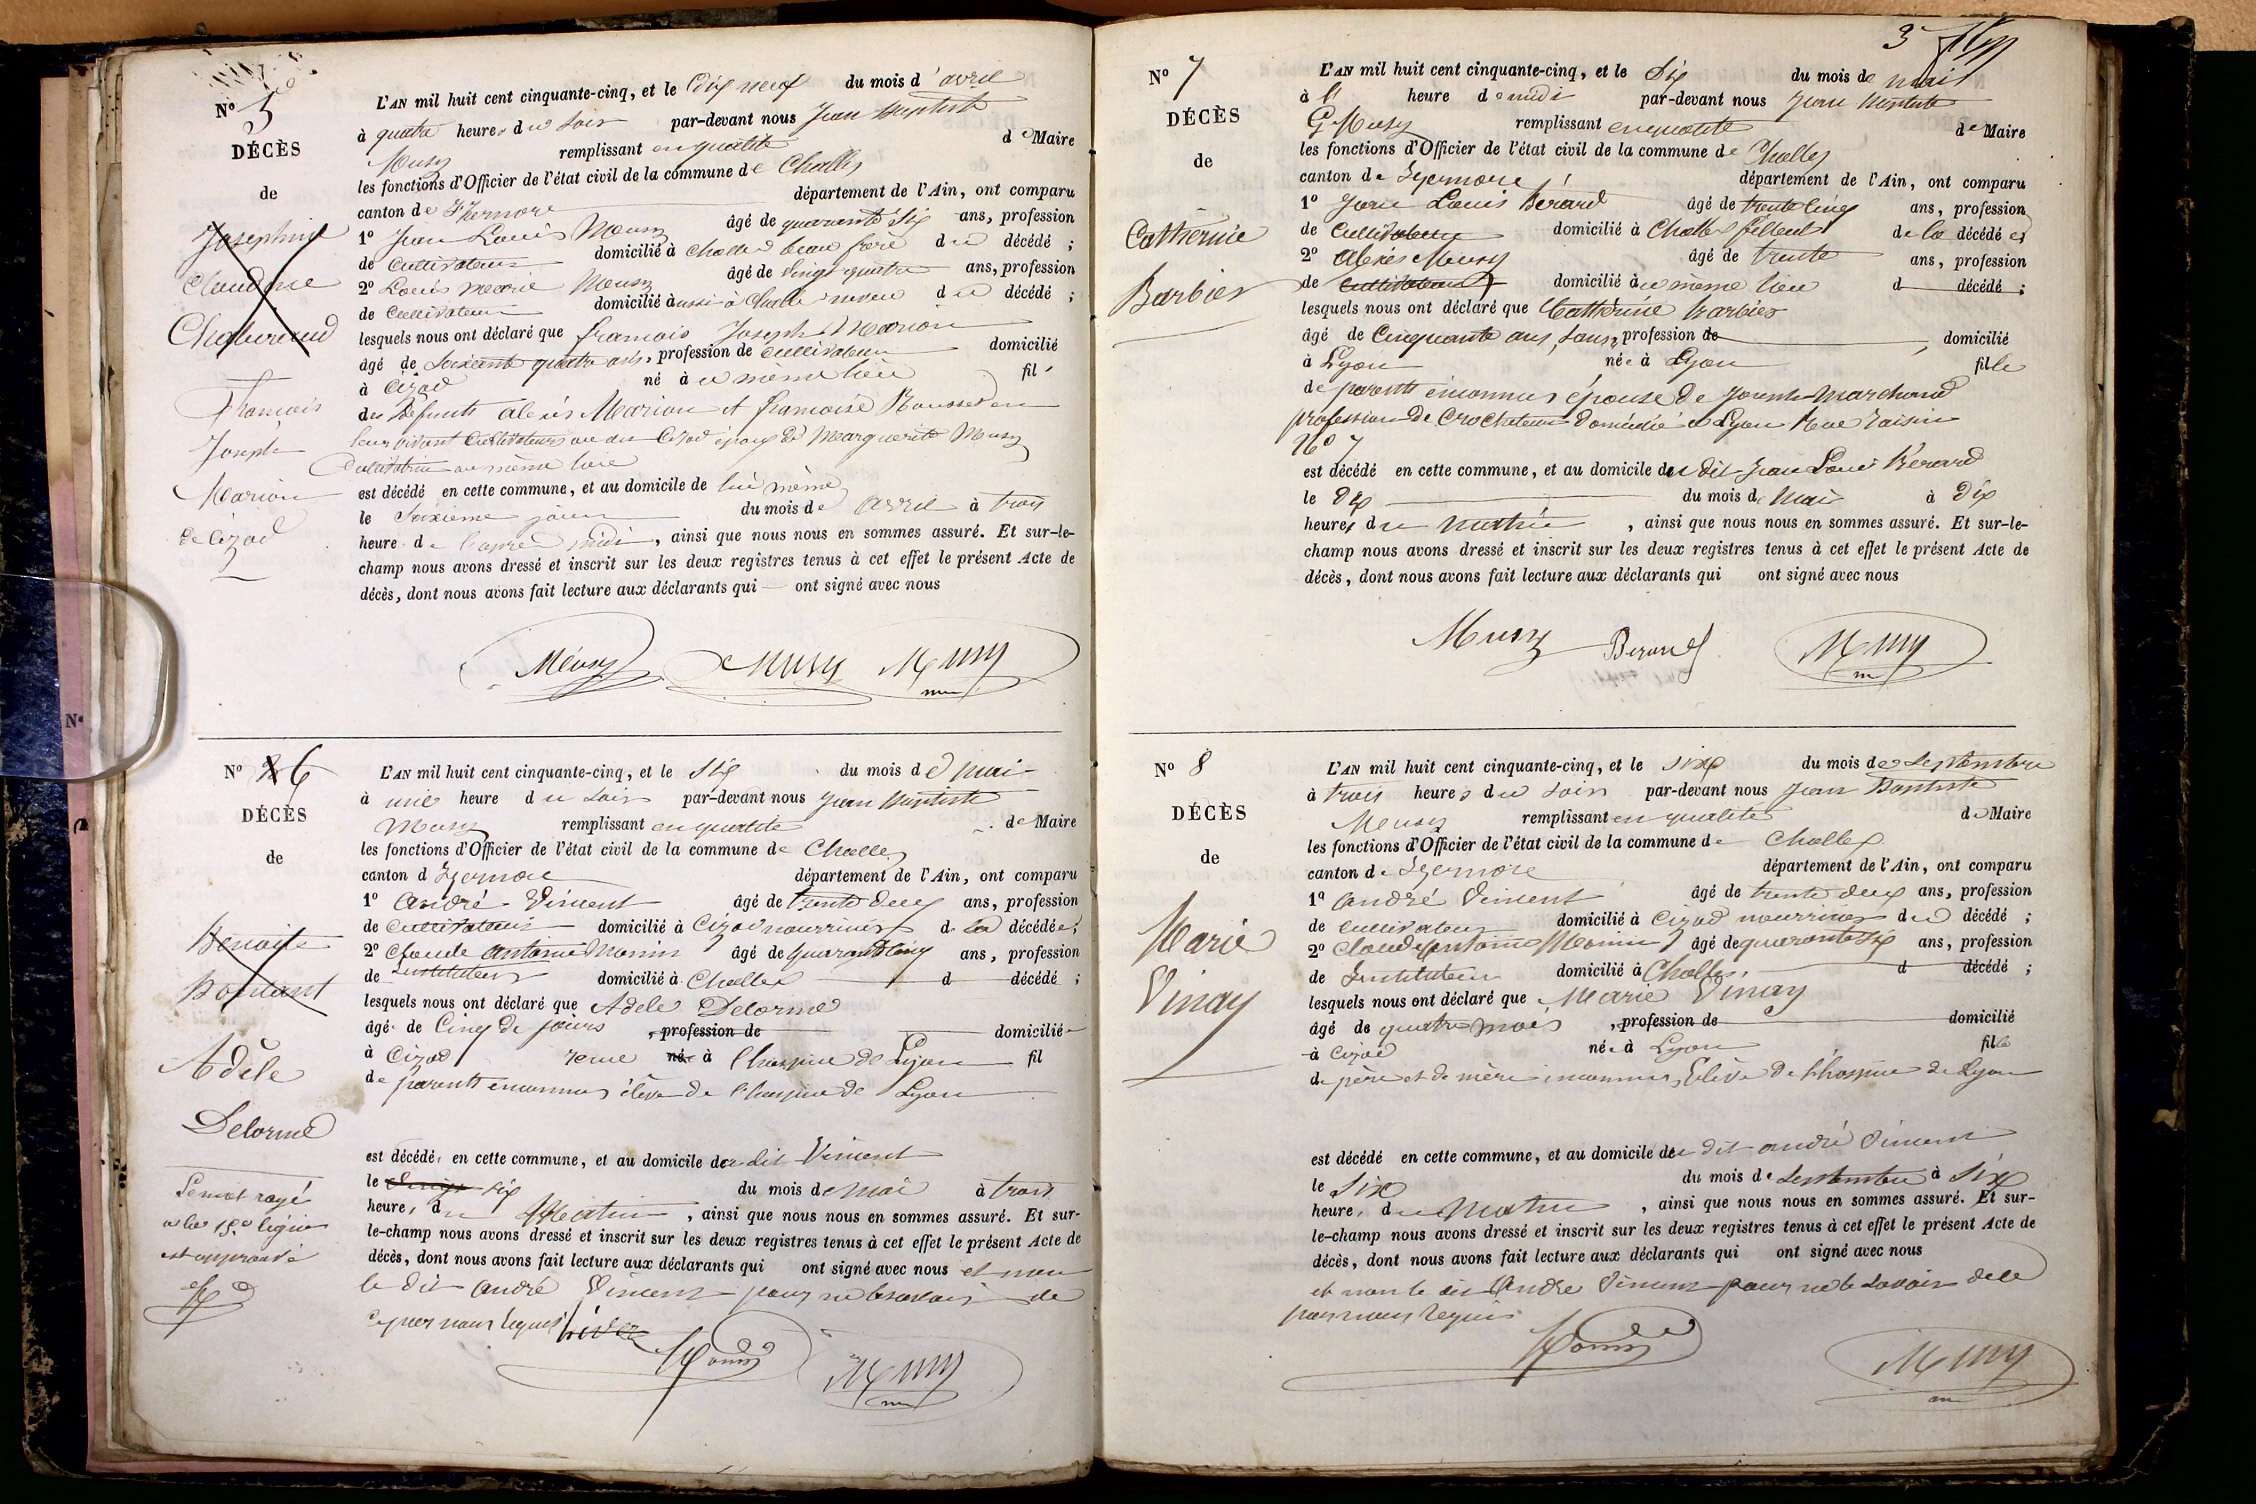 N° 5
DÉCÈS
de
Josephine
Claudine
François
Joseph
Marion
de Cizod
L'AN mil huit cent cinquante-cinq, et le dix neuf du mois d'avril
à quatre heures du soir par-devant nous Jean Baptiste
Musy remplissant en qualité de Maire
les fonctions d'Officier de l'état civil de la commune de Challes
canton de département de l'Ain, ont comparu
1° Jean Louis Musy âgé de quarante six ans, profession
de Cultivateur domicilié à Challes beau frère du décédé ;
2° Louis Marie Musy âgé de vingt quatre ans, profession
de Cultivateur domicilié à aussi à Challes neveu du décédé ;
lesquels nous ont déclaré que françois Joseph Marion
âgé de soixante quatre ans, profession de cultivateur domicilié
à Cizod né à ce même lieu fils
des défunts Alexis Marion et françoise
leur vivant Cultivateurs au dit Cizod époux de Marguerite Musy
Cultivatrice au même lieu
est décédé en cette commune, et au domicile de lui même
le jour du mois de avril à trois
heure de l'après midi, ainsi que nous nous en sommes assuré. Et sur-le-
champ nous avons dressé et inscrit sur les deux registres tenus à cet effet le présent Acte de
décès, dont nous avons fait lecture aux déclarants qui ont signé avec nous
Musy Musy Musy
N° 6
DÉCÈS
de
Benoite
Adèle
Delorme
Le mot rayé
à la 15e ligne
est approuvé
L'AN mil huit cent cinquante-cinq, et le six du mois de mai
à une heure du soir par-devant nous Jean Baptiste
Musy remplissant en qualité de Maire
les fonctions d'Officier de l'état civil de la commune de Challes
canton d Izernore département de l'Ain, ont comparu
1° André Vincent âgé de trente deux ans, profession
de cultivateur domicilié à Cizod nourricier de la décédée ;
2° Claude Antoine Monin âgé de quarante cinq ans, profession
de Instituteur domicilié à Challes d décédé ;
lesquels nous ont déclaré que Adèle Delorme
âgé de Cinq de jours, profession de domiciliée
à Cizod venue née à l'hospice de Lyon fil
de parents inconnus élève de l'hospice de Lyon
est décédé, en cette commune, et au domicile du dit Vincent
le six du mois de Mai à trois
heures du Matin, ainsi que nous nous en sommes assuré. Et sur-
le-champ nous avons dressé et inscrit sur les deux registres tenus à cet effet le présent Acte de
décès, dont nous avons fait lecture aux déclarants qui ont signé avec nous et non
le dit André Vincent pour ne le savoir de
ce par nous requis
Monin Musy
3
N° 7
DÉCÈS
de
Catherine
Barbier
L'AN mil huit cent cinquante-cinq, et le Dix du mois de mai
à heure de midi par-devant nous Jean Baptiste
Musy remplissant en qualité de Maire
les fonctions d'Officier de l'état civil de la commune de Challes
canton de Izernore département de l'Ain, ont comparu
1° Jean Louis Bérard âgé de trente cinq ans, profession
de Cultivateur domicilié à Challes filleul de la décédée
2° Alexis Musy âgé de trente ans, profession
de Cultivateur domicilié à ce même lieu d décédé ;
lesquels nous ont déclaré que Catherine Barbier
âgé de Cinquante ans, sans profession de domicilié
à Lyon née à Lyon fille
de parents inconnus épouse de Marchand
profession de Crocheteur Domicilié à Lyon Rue Raisin
N° 7
est décédé en cette commune, et au domicile du dit Jean Louis Bérard
le dix du mois de Mai à Dix
heures du matin, ainsi que nous nous en sommes assuré. Et sur-le-
champ nous avons dressé et inscrit sur les deux registres tenus à cet effet le présent Acte de
décès, dont nous avons fait lecture aux déclarants qui ont signé avec nous
Musy Berard Musy
N° 8
DÉCÈS
de
Marie
Vinay
L'AN mil huit cent cinquante-cinq, et le six du mois de Septembre
à trois heures du soir par-devant nous Jean Baptiste
Musy remplissant en qualité de Maire
les fonctions d'Officier de l'état civil de la commune de Challes
canton de Izernore département de l'Ain, ont comparu
1° André Vincent âgé de trente deux ans, profession
de cultivateur domicilié à Cizod nourricier du décédé ;
2° Claude Antoine Monin âgé de quarante six ans, profession
de Instituteur domicilié à Challes, d décédé ;
lesquels nous ont déclaré que Marie Vinay
âgé de quatre mois, profession de domicilié
à Cizod née à Lyon fille
de père et de mère inconnus, Elève de l'hospice de Lyon
est décédé en cette commune, et au domicile du dit André Vincent
le Six du mois de Septembre à Six
heures du Matin, ainsi que nous nous en sommes assuré. Et sur-
le-champ nous avons dressé et inscrit sur les deux registres tenus à cet effet le présent Acte de
décès, dont nous avons fait lecture aux déclarants qui ont signé avec nous
et non le dit André Vincent pour ne le savoir de ce
par nous requis
Monin Musy
N°